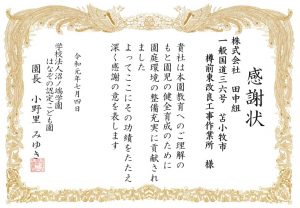 感謝状
株式会社 田中組
一般国道三六号 苫小牧市
樽前東改良工事作業所 様
貴社は本園教育へのご理解の
もと園児の健全育成のために
園庭環境の整備充実に貢献され
ました
よってここにその功績をたたえ
深く感謝の意を表します
令和元年七月四日
学校法人沼ノ端学園
はなぞの認定こども園
園長 小野里 みゆき